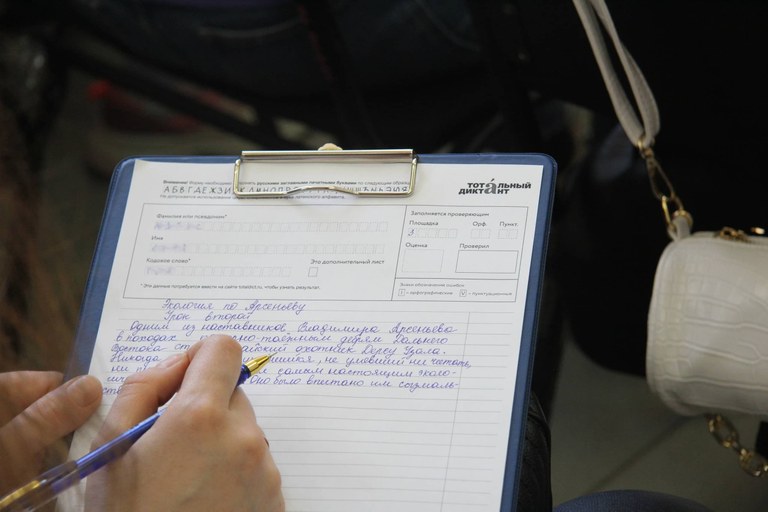 Внимание! Форму необходимо русскими заглавными печатными буквами по следующему
АБВГДЕЖЗИ
ТОТАЛЬНЫЙ
ДИКТАНТ
Фамилия или псевдоним*
Имя
Кодовое слово*
Это дополнительный лист
* Эти данные потребуется ввести на сайте totaldict.ru, чтобы узнать результат.
Заполняется проверяющим
Площадка Орф. Пункт.
Оценка Проверил
Знаки обозначения ошибок:
I – орфографическая V – пунктуационная
Экология по Арсеньеву
Урок второй
Одним из наставников Владимира Арсеньева
в походах по таёжным дебрям Дальнего
Востока охотник Дерсу Узала.
Никогда не учившийся, не умевший ни читать,
ни самым настоящим эколо-
Оно было впитано им с